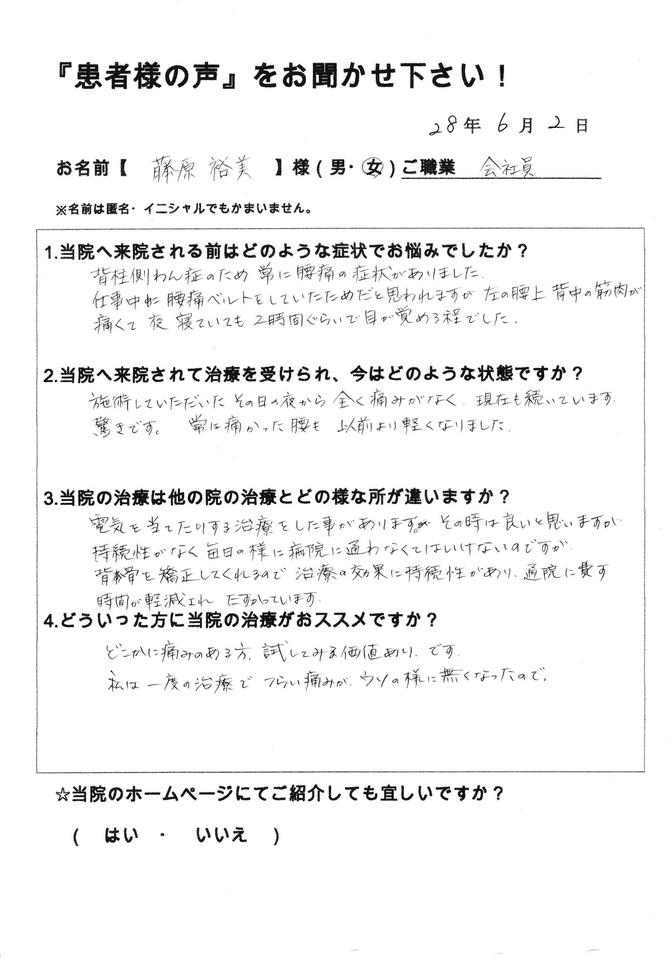 『患者様の声』をお聞かせ下さい！
28年 6月 2日
お名前【 藤原 裕美 】様(男・女)ご職業 会社員
※名前は匿名・イニシャルでもかまいません。
1.当院へ来院される前はどのような症状でお悩みでしたか？
背柱側わん症のため 常に腰痛の症状がありました.
仕事中に腰痛ベルトをしていたためだと思われますが 左の腰上 背中の筋肉が
痛くて 夜 寝ていても 2時間ぐらいで目が覚める程でした.
2.当院へ来院されて治療を受けられ、今はどのような状態ですか？
施術していただいた その日の夜から 全く痛みがなく. 現在も続いています.
驚きです。 常に痛かった腰も 以前より軽くなりました.
3.当院の治療は他の院の治療とどの様な所が違いますか？
電気を当てたりする治療をした事がありますが その時は良いと思いますが
持続性がなく 毎日の様に病院に通わなくてはいけないのですが.
背骨を矯正してくれるので 治療の効果に持続性があり. 通院に費す
時間が軽減され たすかっています.
4.どういった方に当院の治療がおススメですか？
どこかに痛みのある方. 試してみる価値あり. です.
私は 一度の治療で つらい痛みが. ウソの様に無くなったので.
☆当院のホームページにてご紹介しても宜しいですか？
( はい ・ いいえ )